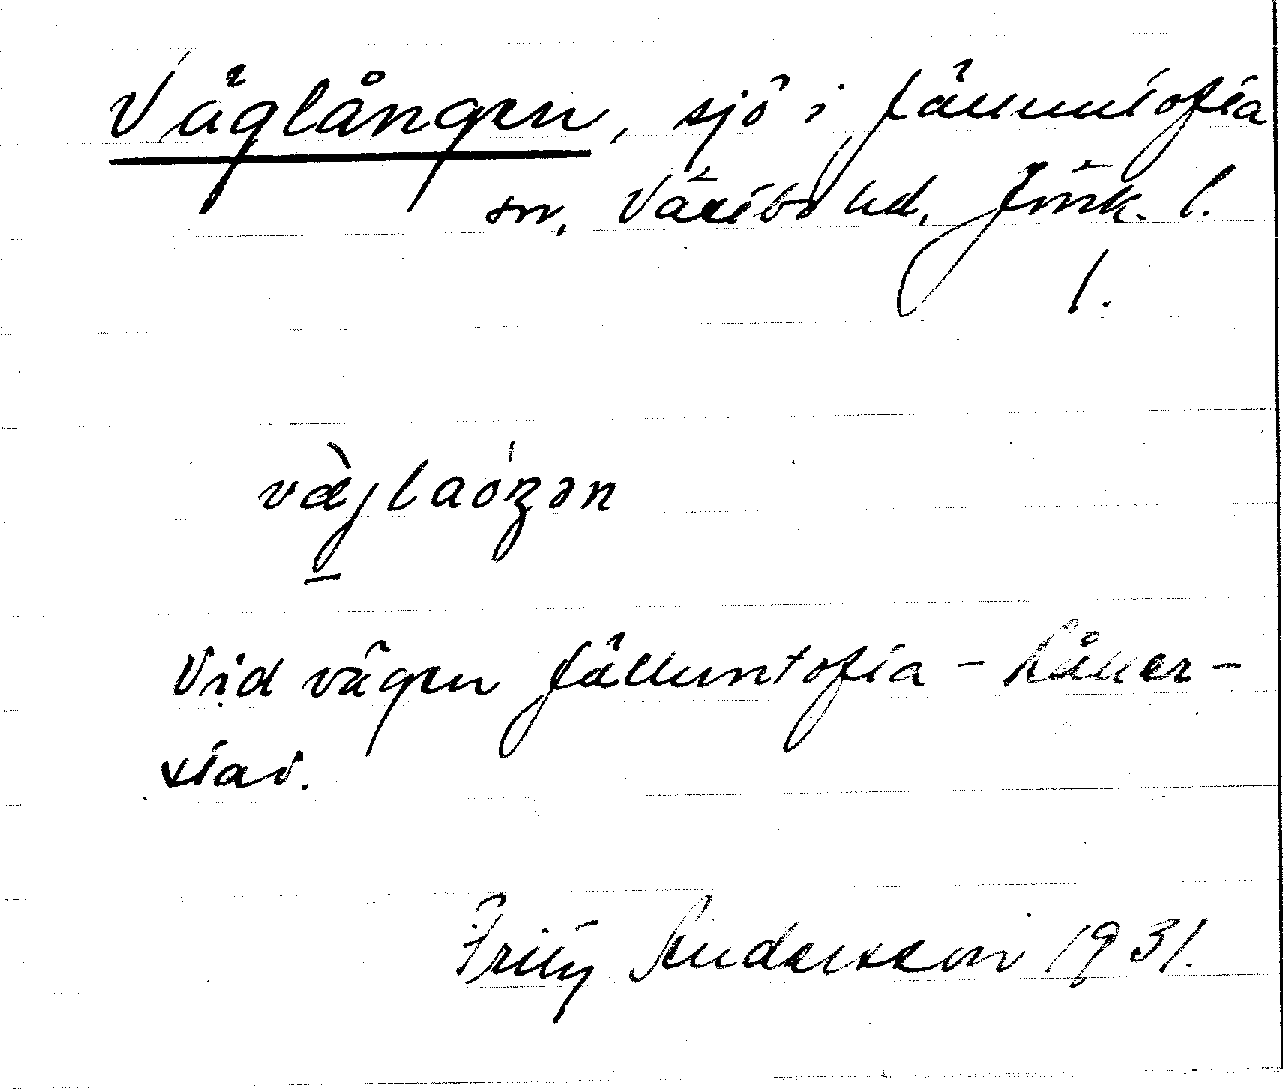 Väglången, sjö i Jälluntofta
sn, Västbo hd, Jönk. l.
1.
væ̀ʝlaóʒən
Vid vägen Jälluntofta - Låker-
stad.
Fritz Andersson 1931.